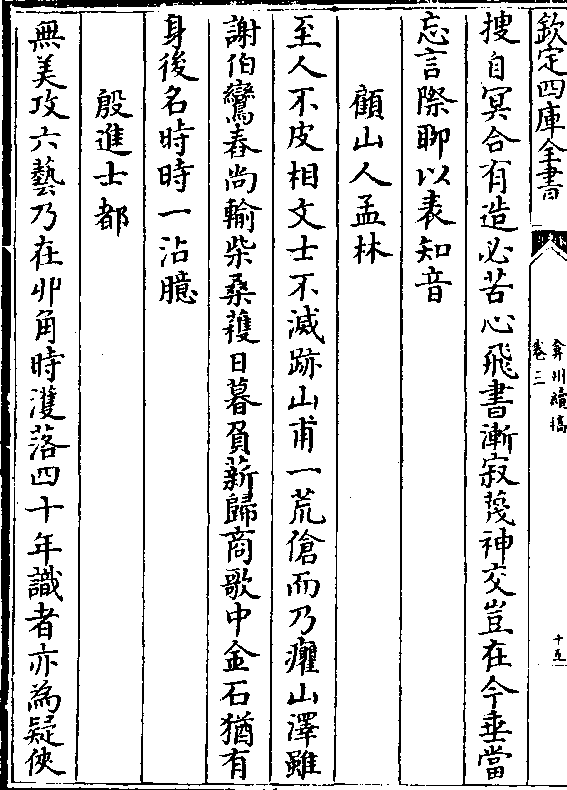 欽定四庫全書
弇州續稿
卷三
十五
搜自冥合有造必苦心飛書漸寂蔑神交豈在今垂當
忘言際聊以表知音
顧山人孟林
至人不皮相文士不滅跡山甫一荒傖而乃癯山澤雖
謝伯鸞舂尚輸柴桑穫日暮負薪歸商歌中金石猶有
身後名時時一沾臆
殷進士都
無美攻六藝乃在丱角時濩落四十年識者亦為疑俠